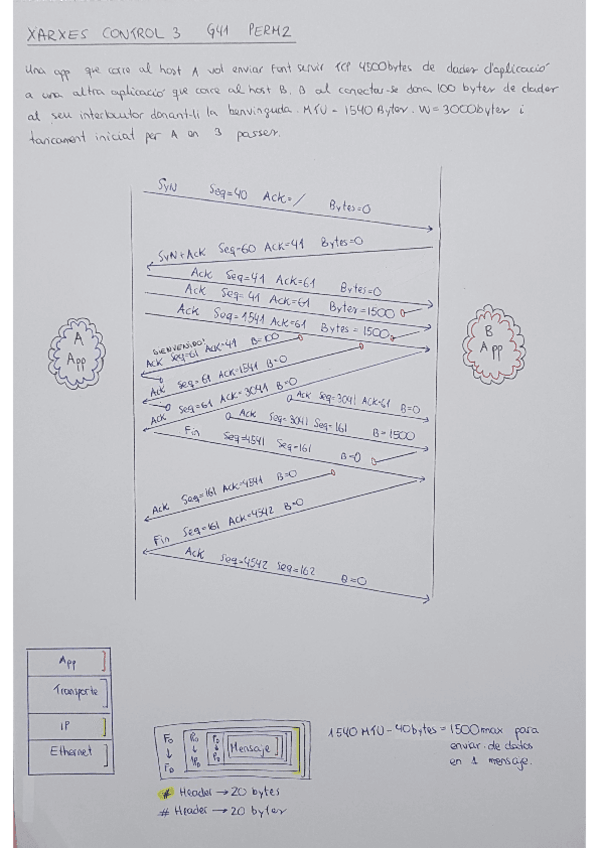 XARXES CONTROL 3 G41 PERM2
Una app que corre al host A vol enviar fent servir TCP 4500bytes de dades d'aplicació
a una altra aplicació que corre al host B, B al conectar-se dona 100 bytes de dades
al seu interlocutor donant-li la benvinguda. MTU = 1540 Bytes. W = 3000bytes i
tancament iniciat per A en 3 passes.
SYN Seq=40 Ack=/ Bytes=0
SYN+Ack Seq=60 Ack=41 Bytes=0
Ack Seq=41 Ack=61 Bytes=0
Ack Seq=41 Ack=61 Bytes=1500
Ack Seq=1541 Ack=61 Bytes=1500
BIENVENIDO!
Ack Seq=61 Ack=41 B=100
Ack Seq=61 Ack=1541 B=0
Ack Seq=61 Ack=3041 B=0
Ack Seq=3041 Ack=61 B=0
Ack Seq=3041 Seq=161 B=1500
Fin Seq=4541 Seq=161 B=0
Ack Seq=161 Ack=4541 B=0
Fin Seq=161 Ack=4542 B=0
Ack Seq=4542 Seq=162 B=0
A
App
B
App
App
Transporte
IP
Ethernet
Mensaje
1540 MTU - 40bytes = 1500max para
enviar de datos
en 1 mensaje.
# Header → 20 bytes
# Header → 20 bytes